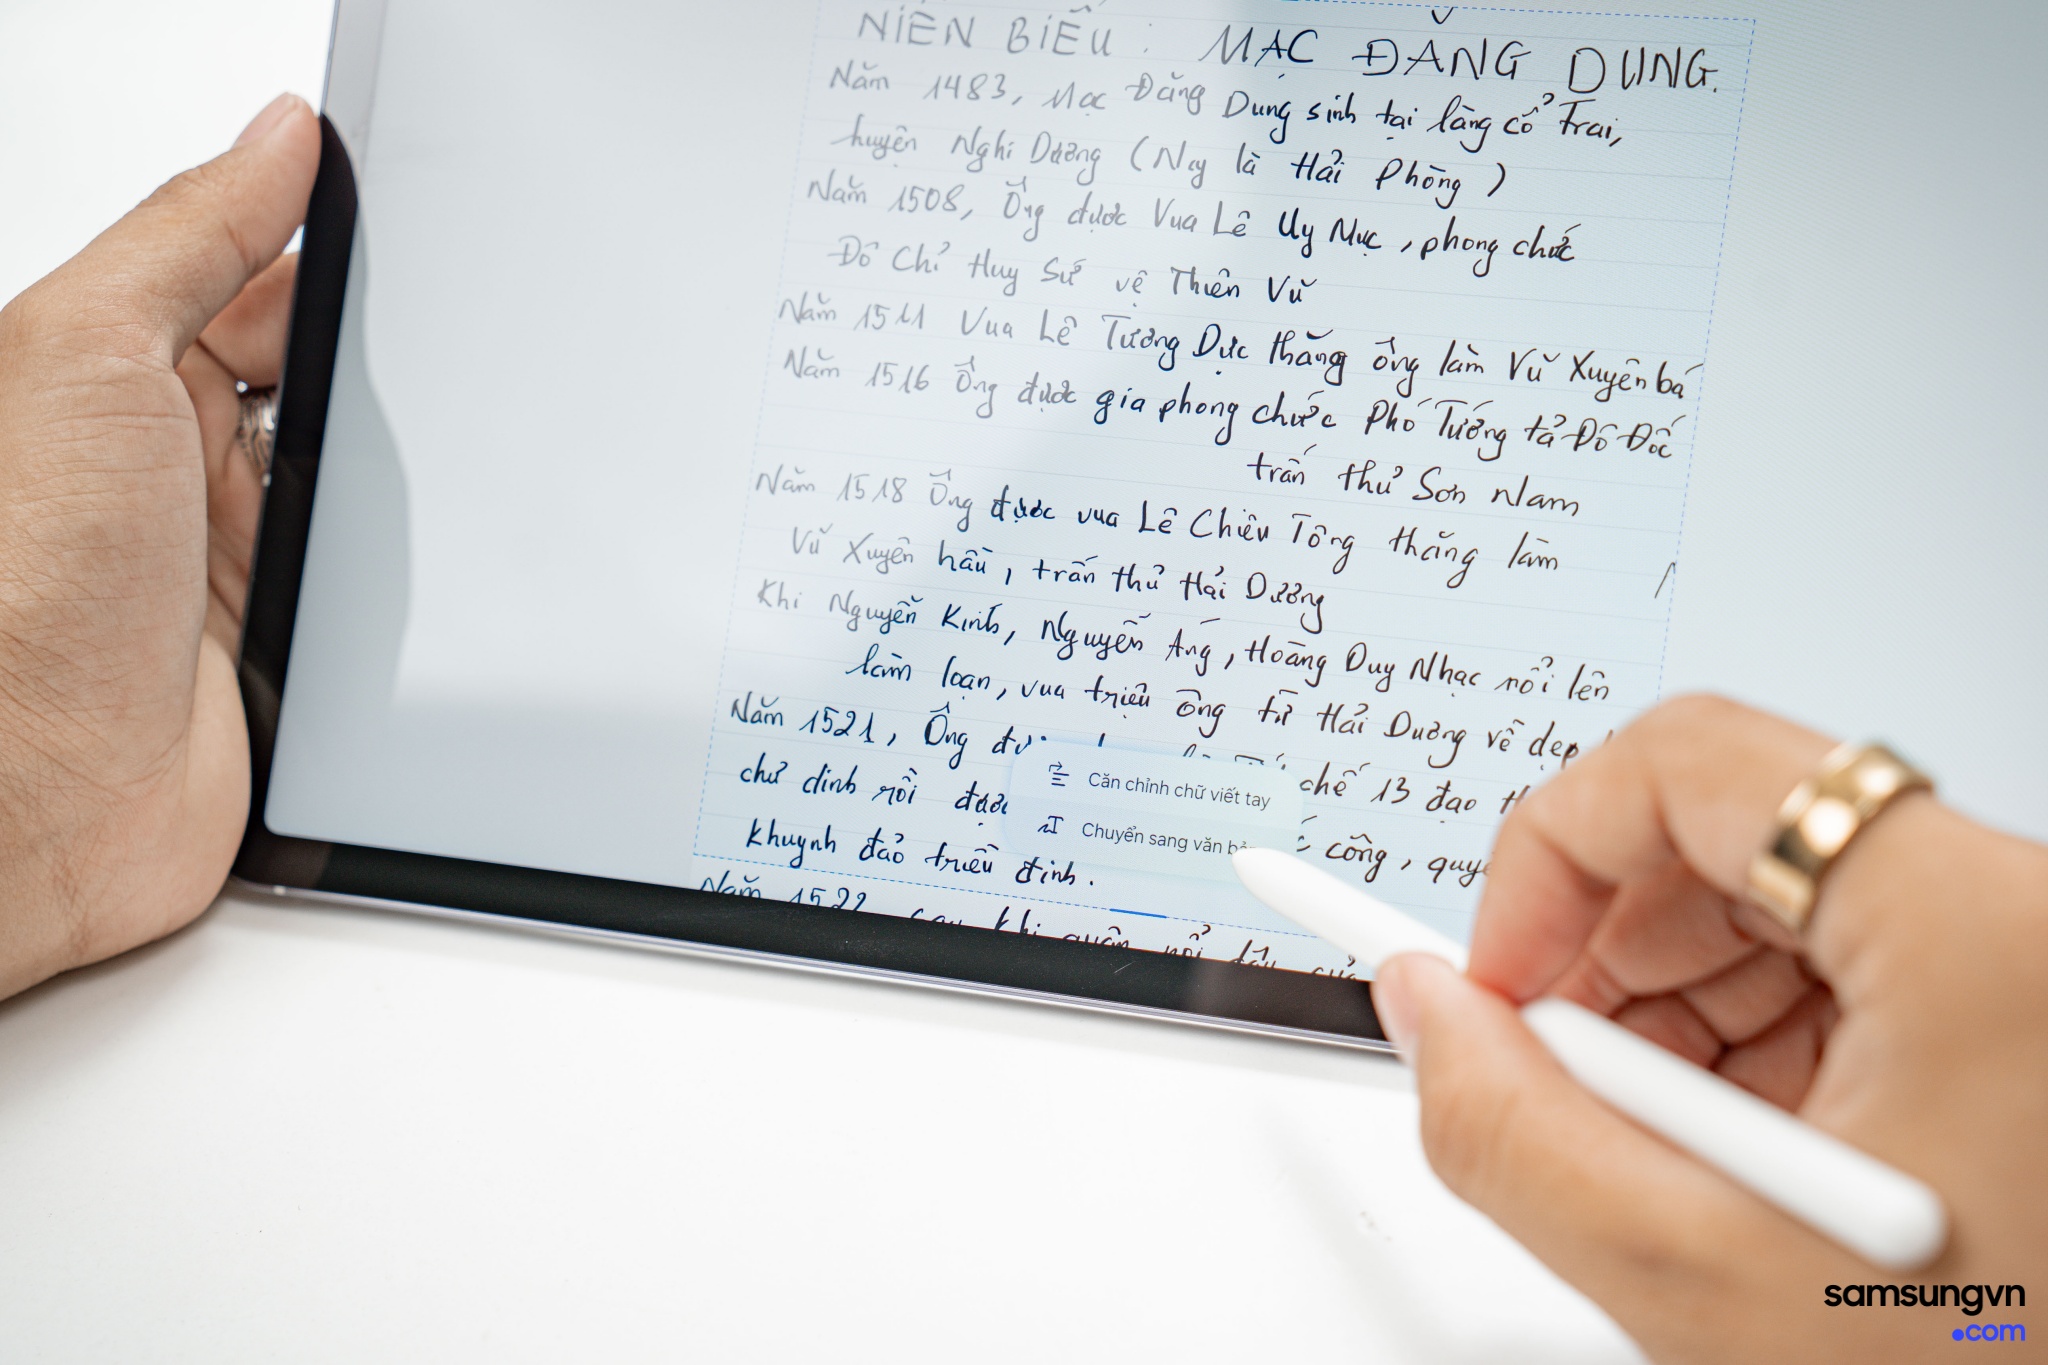 NIÊN BIỂU: MẠC ĐĂNG DUNG.
Năm 1483, Mạc Đăng Dung sinh tại làng cổ Trai,
huyện Nghi Dương (Nay là Hải Phòng)
Năm 1508, Ông được Vua Lê Uy Mục, phong chức
Đô Chỉ Huy Sứ vệ Thiên Vũ
Năm 1511 Vua Lê Tương Dực thăng ông làm Vũ Xuyên bá
Năm 1516 Ông được gia phong chức Phó Tướng tả Đô Đốc
trấn thủ Sơn Nam
Năm 1518 Ông được vua Lê Chiêu Tông thăng làm
Vũ Xuyên hầu, trấn thủ Hải Dương
Khi Nguyễn Kính, Nguyễn Áng, Hoàng Duy Nhạc nổi lên
làm loạn, vua triệu ông từ Hải Dương về dẹp
Năm 1521, Ông chế 13 đạo
chư dinh rồi được công,
khuynh đảo triều đình.
Năm 1522 sau khi quân nổi dậy của
Căn chỉnh chữ viết tay
Chuyển sang văn
samsungvn
.com